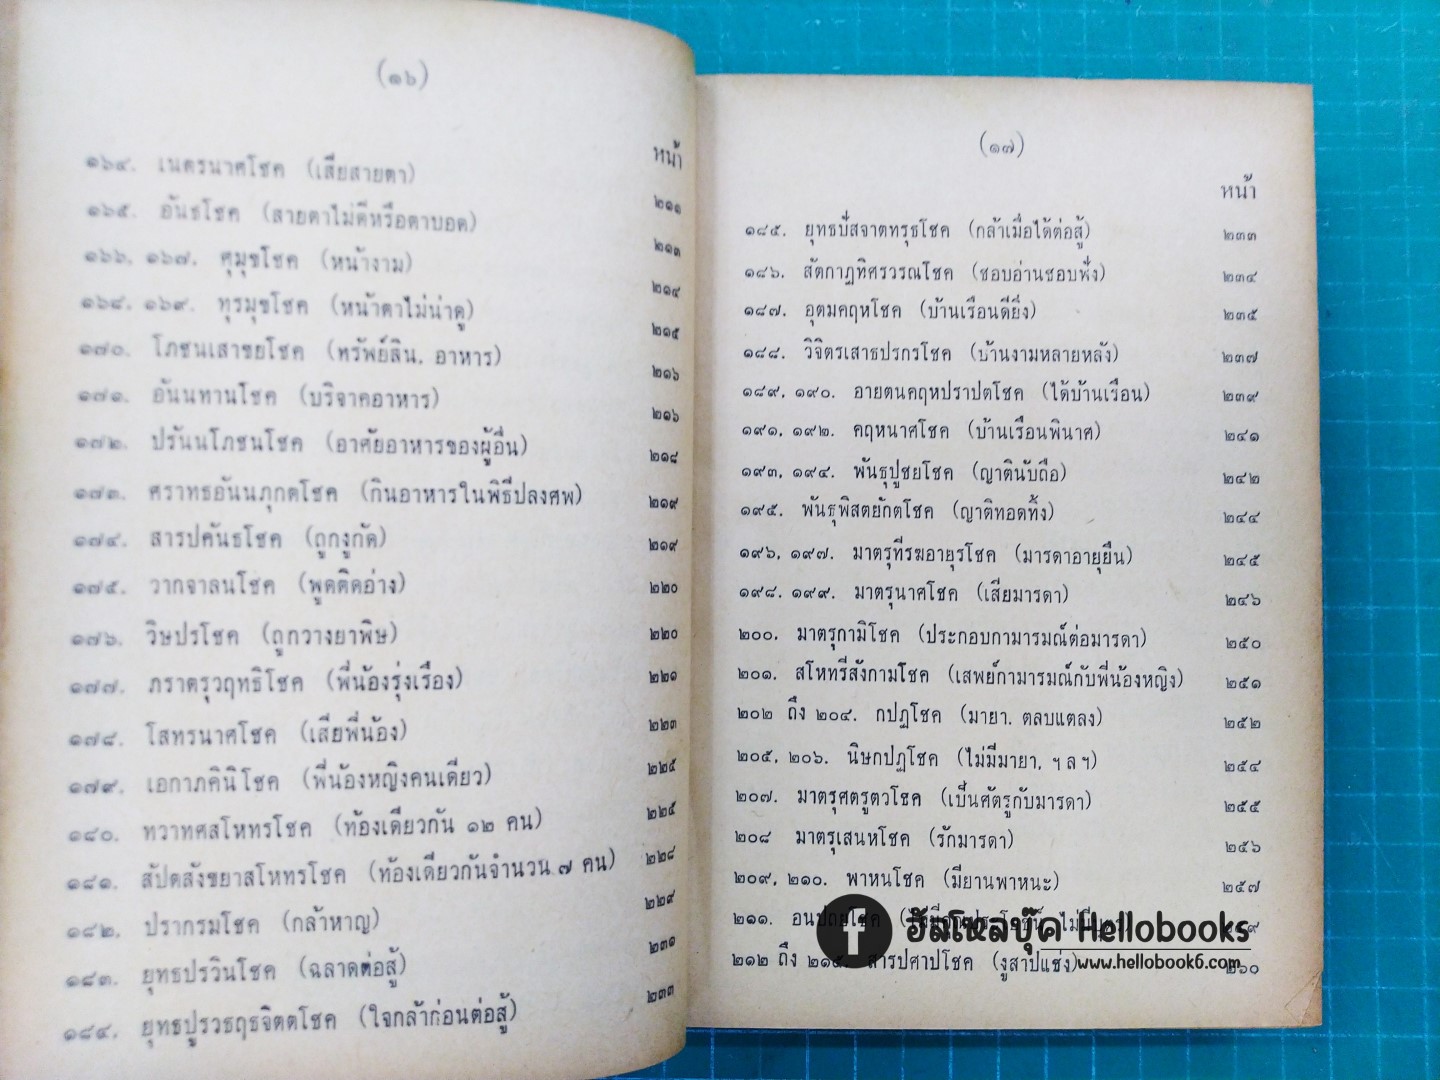 (๑๖)
หน้า
๑๖๔. เนตรนาศโชค (เสียสายตา) ๒๑๑
๑๖๕. อันธโชค (สายตาไม่ดีหรือตาบอด) ๒๑๓
๑๖๖, ๑๖๗. ศุมุขโชค (หน้างาม) ๒๑๔
๑๖๘, ๑๖๙. ทุรมุขโชค (หน้าตาไม่น่าดู) ๒๑๕
๑๗๐. โภชนเสาขยโชค (ทรัพย์สิน, อาหาร) ๒๑๖
๑๗๑. อันนทานโชค (บริจาคอาหาร) ๒๑๖
๑๗๒. ปรันนโภชนโชค (อาศัยอาหารของผู้อื่น) ๒๑๘
๑๗๓. ศราทธอันนภุกตโชค (กินอาหารในพิธีปลงศพ) ๒๑๙
๑๗๔. สารปคันธโชค (ถูกงูกัด) ๒๑๙
๑๗๕. วากจาลนโชค (พูดติดอ่าง) ๒๒๐
๑๗๖. วิษปรโชค (ถูกวางยาพิษ) ๒๒๐
๑๗๗. ภราตรุวฤทธิโชค (พี่น้องรุ่งเรือง) ๒๒๑
๑๗๘. โสทรนาศโชค (เสียพี่น้อง) ๒๒๓
๑๗๙. เอกาภคินิโชค (พี่น้องหญิงคนเดียว) ๒๒๕
๑๘๐. ทวาทศสโหทรโชค (ท้องเดียวกัน ๑๒ คน) ๒๒๕
๑๘๑. สัปตสังขยาสโหทรโชค (ท้องเดียวกันจำนวน ๗ คน) ๒๒๘
๑๘๒. ปรากรมโชค (กล้าหาญ) ๒๒๙
๑๘๓. ยุทธปรวินโชค (ฉลาดต่อสู้) ๒๓๑
๑๘๔. ยุทธปูรวธฤธจิตตโชค (ใจกล้าก่อนต่อสู้) ๒๓๓
(๑๗)
หน้า
๑๘๕. ยุทธปัสจาตทรุธโชค (กล้าเมื่อได้ต่อสู้) ๒๓๓
๑๘๖. สัตกาฏทิศรวรณโชค (ชอบอ่านชอบฟัง) ๒๓๔
๑๘๗. อุตมคฤหโชค (บ้านเรือนดียิ่ง) ๒๓๕
๑๘๘. วิจิตรเสาธปรกรโชค (บ้านงามหลายหลัง) ๒๓๗
๑๘๙, ๑๙๐. อายตนคฤหปราปตโชค (ได้บ้านเรือน) ๒๓๙
๑๙๑, ๑๙๒. คฤหนาศโชค (บ้านเรือนพินาศ) ๒๔๑
๑๙๓, ๑๙๔. พันธุปูชยโชค (ญาตินับถือ) ๒๔๒
๑๙๕. พันธุพิสตยักตโชค (ญาติทอดทิ้ง) ๒๔๔
๑๙๖, ๑๙๗. มาตรุทีรฆอายุรโชค (มารดาอายุยืน) ๒๔๕
๑๙๘. ๑๙๙. มาตรุนาศโชค (เสียมารดา) ๒๔๖
๒๐๐. มาตรุกามิโชค (ประกอบกามารมณ์ต่อมารดา) ๒๕๐
๒๐๑. สโหทรีสังกามโชค (เสพย์กามารมณ์กับพี่น้องหญิง) ๒๕๑
๒๐๒ ถึง ๒๐๔. กปฏโชค (มายา, ตลบแตลง) ๒๕๒
๒๐๕, ๒๐๖. นิษกปฏโชค (ไม่มีมายา, ฯลฯ) ๒๕๔
๒๐๗. มาตรุศตรูตวโชค (เป็นศัตรูกับมารดา) ๒๕๕
๒๐๘ มาตรุเสนหโชค (รักมารดา) ๒๕๖
๒๐๙, ๒๑๐. พาหนโชค (มียานพาหนะ) ๒๕๗
๒๑๑. ไม่มีบุตร)
๒๑๒ ถึง ๒๑๕. สารปศาปโชค (งูสาปแช่ง) ๒๖๐
f ฮัลโหลบุ๊ค Hellobooks
www.hellobook6.com